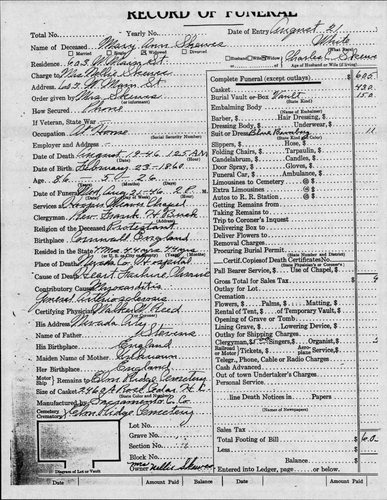 RECORD OF FUNERAL
Total No. Yearly No. Date of Entry August 21
Name of Deceased Mary Ann Skewes White
Married Single Widowed Divorced (What Race)
Residence 603 W. Main St. Husband Wife Widow of Charles C. Skewes
Age of Husband or Wife (if living)
Charge to Mrs. Nellie Skewes
Address 603 W. Main St.
Order given by Mrs. Skewes
(or informant)
How Secured Phone
If Veteran, State War
Occupation At Home
(Social Security Number)
Employer and Address
Date of Death August 19-46 1:25 A.M.
Date of Birth February 23-1860
Age 86 - 5 - 26
Date of Funeral Aug 21-46 2 P.M.
Services at Hooper Weaver Chapel
Clergyman Rev. Frank H.
Religion of the Deceased Protestant
Birthplace Cornwall England
Resided in the State
Place of Death Nevada Co. Hospital
Cause of Death Heart Failure Chronic
Contributory Causes Myocarditis
General Arteriosclerosis
Certifying Physician Walter W. Reed
His Address Nevada City
Name of Father Stevens
His Birthplace England
Maiden Name of Mother Unknown
Her Birthplace England
Motor Ship Remains to Elm Ridge Cemetery
Size of Casket
(State Color and Number)
Manufactured by Sacramento C. Co.
Cemetery Crematory Elm Ridge Cemetery
Lot No.
Grave No.
Section No.
Block No.
Owner Mrs. Nellie Skewes
Diagram of Lot or Vault
Complete Funeral (except outlays) $ 605
Casket 430
Burial Vault or Box Vault 150
(State Kind)
Embalming Body
Barber, $ Hair Dressing, $
Dressing Body, $ Underwear, $
Suit or Dress 11
(State Kind and Color)
Slippers, $ Hose, $
Folding Chairs, $ Tarpaulin, $
Candelabrum, $ Candles, $
Door Spray, $ Gloves, $
Funeral Car, $ Ambulance, $
Limousines to Cemetery @ $
Extra Limousines @ $
Autos to R. R. Station @ $
Getting Remains from
Taking Remains to
Trip to Coroner's Inquest
Delivering Box to
Deliver Flowers to
Removal Charges
Procuring Burial Permit
(State Number and District)
Certif. Copies of Death Certificates
Pall Bearer Service, $ Use of Chapel, $
Gross Total for Sales Tax $
Outlay for Lot
Cremation
Flowers, $ Palms, $ Matting, $
Rental of Tent, $ of Temporary Vault, $
Opening of Grave or Tomb
Lining Grave, $ Lowering Device, $
Outlay for Shipping Charges
Clergyman, $ Singers, $ Organist, $
Railroad Motor Tickets, $ Aeroplane Service, $
Teleg., Phone, Cable or Radio Charges
Cash Advanced
Out of town Undertaker's Charges
Personal Service
line Death Notices in Papers
(Names of Newspapers)
Sales Tax
Total Footing of Bill $
Entered into Ledger, page or below.
Date Paid Amount Balance Date Paid Amount Balance